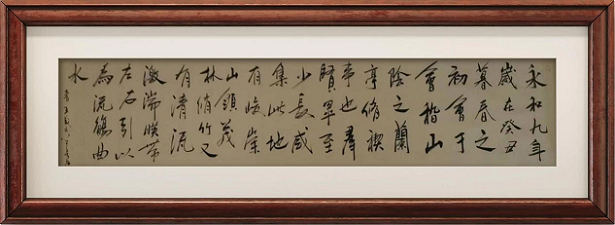 永和九年
歲在癸丑
暮春之
初會于
會稽山
陰之蘭
亭脩禊
事也羣
賢畢至
少長咸
集此地
有峻崇
山領茂
林脩竹又
有清流
激湍暎帶
左右引以
為流觴曲
水